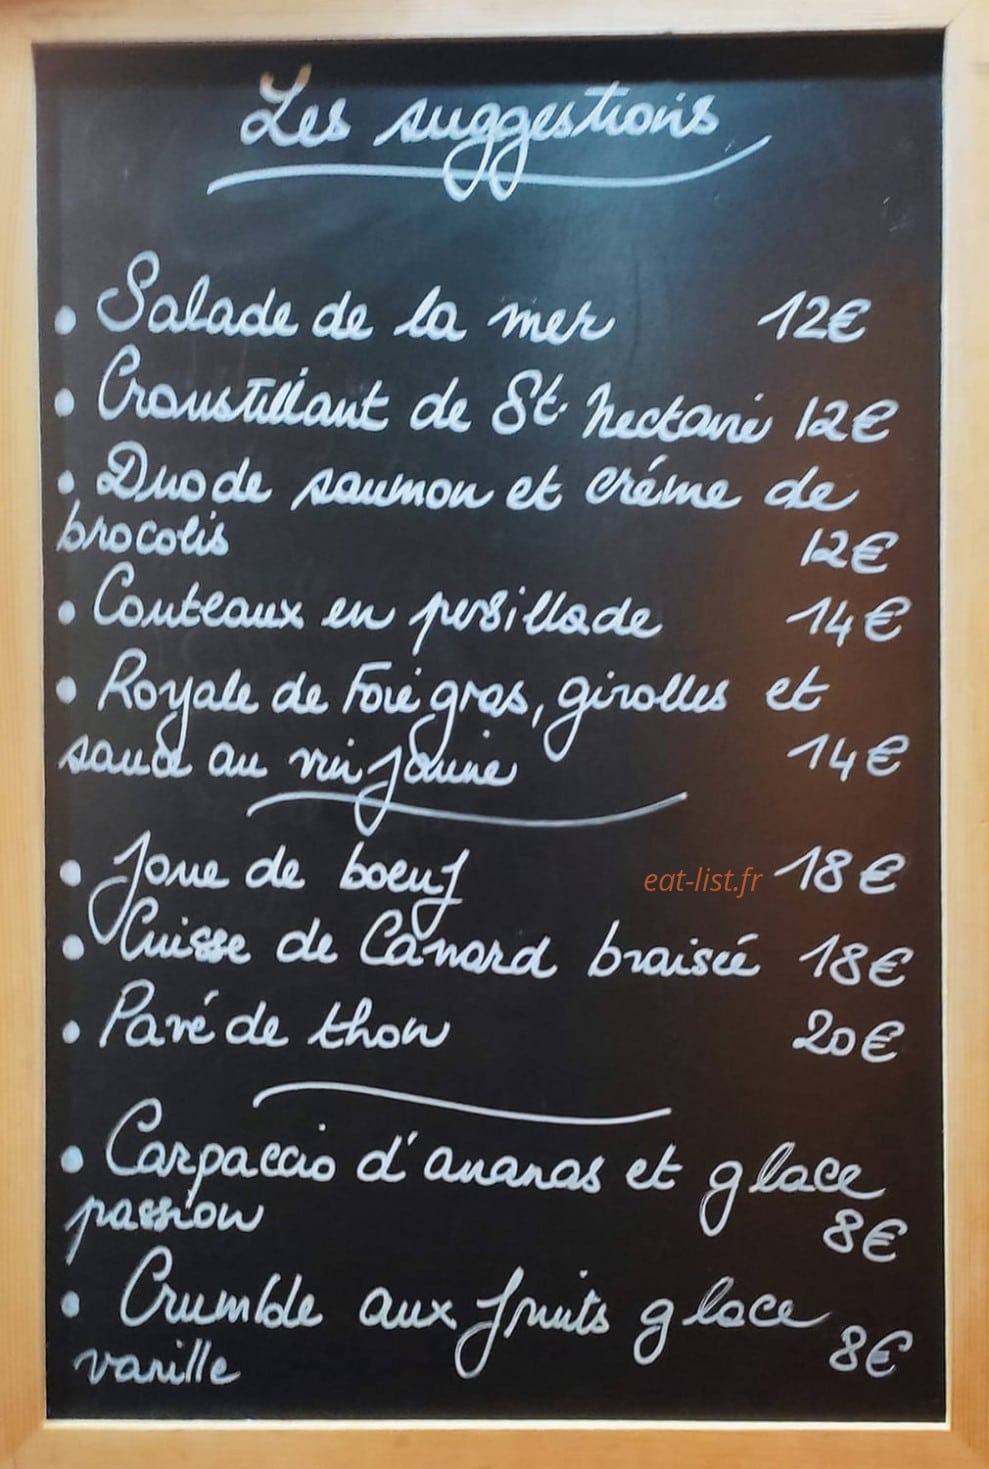 Les suggestions
• Salade de la mer 12€
• Croustillant de St. Nectaire 12€
• Duo de saumon et créme de
brocolis 12€
• Couteaux en persillade 14€
• Royale de Foie gras, girolles et
sauce au vin jaune 14€
• Joue de boeuf 18€
eat-list.fr
• Cuisse de Canard braisée 18€
• Pavé de thon 20€
• Carpaccio d'ananas et glace
passion 8€
• Crumble aux fruits glace
vanille 8€